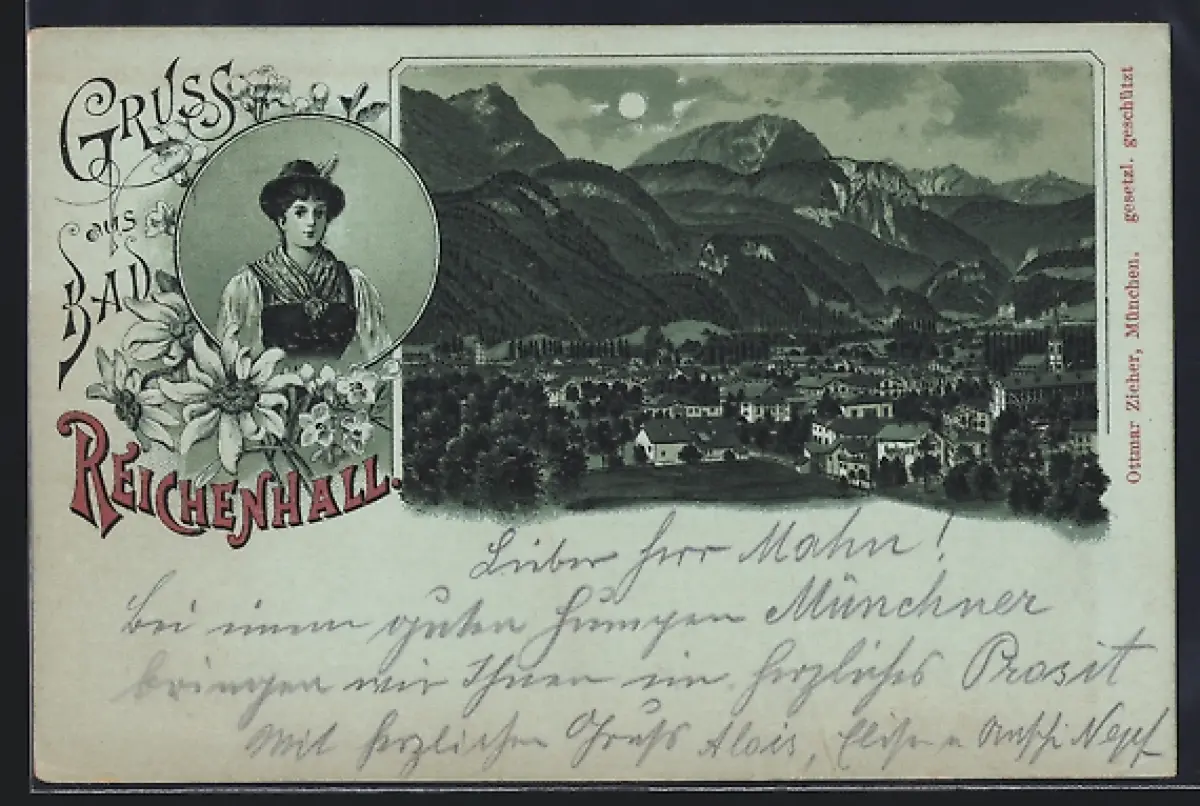 GRUSS
aus
BAD
REICHENHALL.
Ottmar Zieher, München. gesetzl. geschützt
Lieber Herr Mahn!
Bei einem guten Humpen Münchner
bringen wir Ihnen ein herzliches Prosit
Mit herzlichem Gruß Alois, Elise u